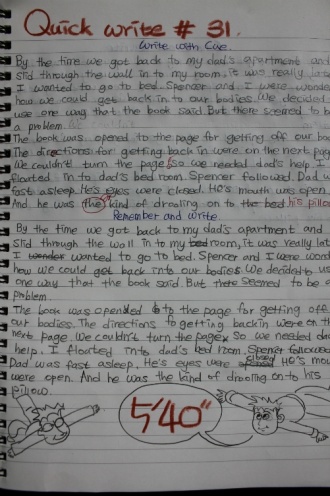 Quick write # 31.
Write with Cue
By the time we got back to my dad's apartment and
slid through the wall in to my room, it was really late
I wanted to go to bed. Spencer and I were wonder
how we could get back in to our bodies. We decided
use one way that the book said. But there seemed to b
a problem
The book was opened to the page for getting off our bo
The directions for getting back in were on the next page
We couldn't turn the page, so we needed dad's help I
floated in to dad's bed room. Spencer followed. Dad w
fast asleep. He's eyes were closed. He's mouth was open.
And he was the kind of drooling on to the bed his pillo
Remember and Write
By the time we got back to my dad's apartment and
slid through the wall in to my bed room, it was really lat
I wonder wanted to go to bed. Spencer and I were wond
how we could get back into our bodies. We decided to u
one way that the book said. But there seemed to be a
problem
The book was opened to the page for getting off
our bodies. The directions to getting back in were on th
next page. We couldn't turn the page. So we needed dad
help. I floated in to dad's bed room. Spencer followed
Dad was fast asleep. He's eyes were closed He's mou
were open. And he was the kind of drooling on to his
pillow.
5'40"